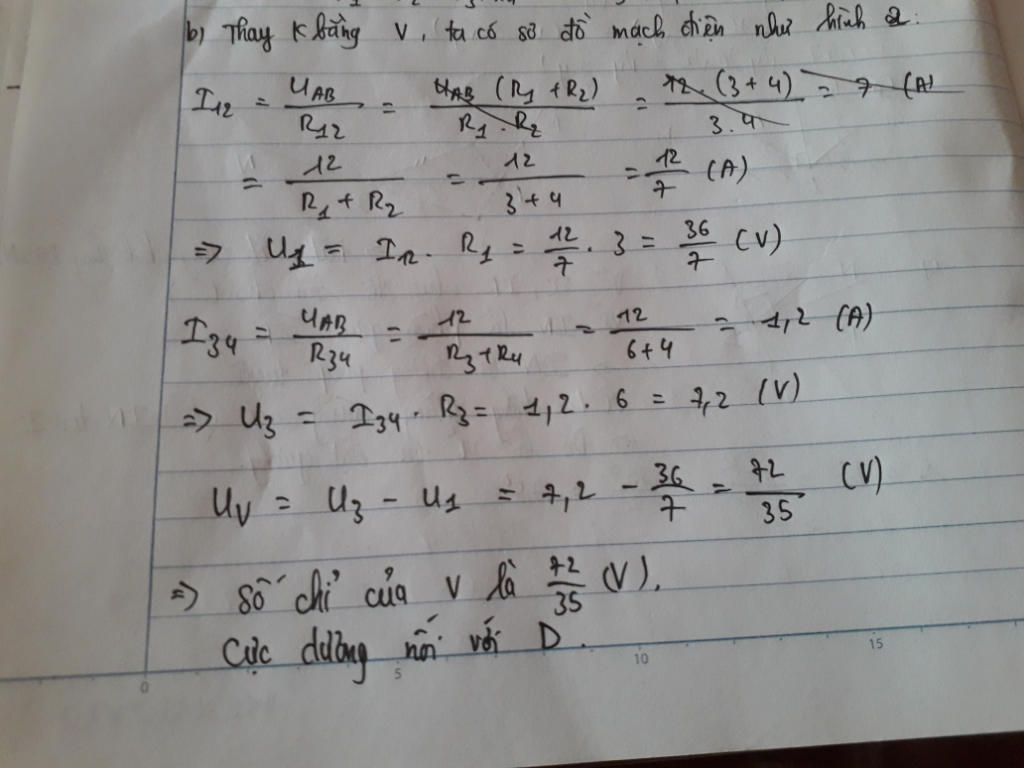 b) Thay K bằng V, ta có sơ đồ mạch điện như hình 2:
I12 = UAB / R12 = UAB (R1 + R2) / R1 . R2 = 12 . (3 + 4) / 3 . 4 = 7 (A)
= 12 / R1 + R2 = 12 / 3 + 4 = 12 / 7 (A)
=> U1 = I12 . R1 = 12 / 7 . 3 = 36 / 7 (V)
I34 = UAB / R34 = 12 / R3 + R4 = 12 / 6 + 4 = 1,2 (A)
=> U3 = I34 . R3 = 1,2 . 6 = 7,2 (V)
UV = U3 - U1 = 7,2 - 36 / 7 = 72 / 35 (V)
=> Số chỉ của V là 72 / 35 (V).
Cực dương nối với D.
0 5 10 15